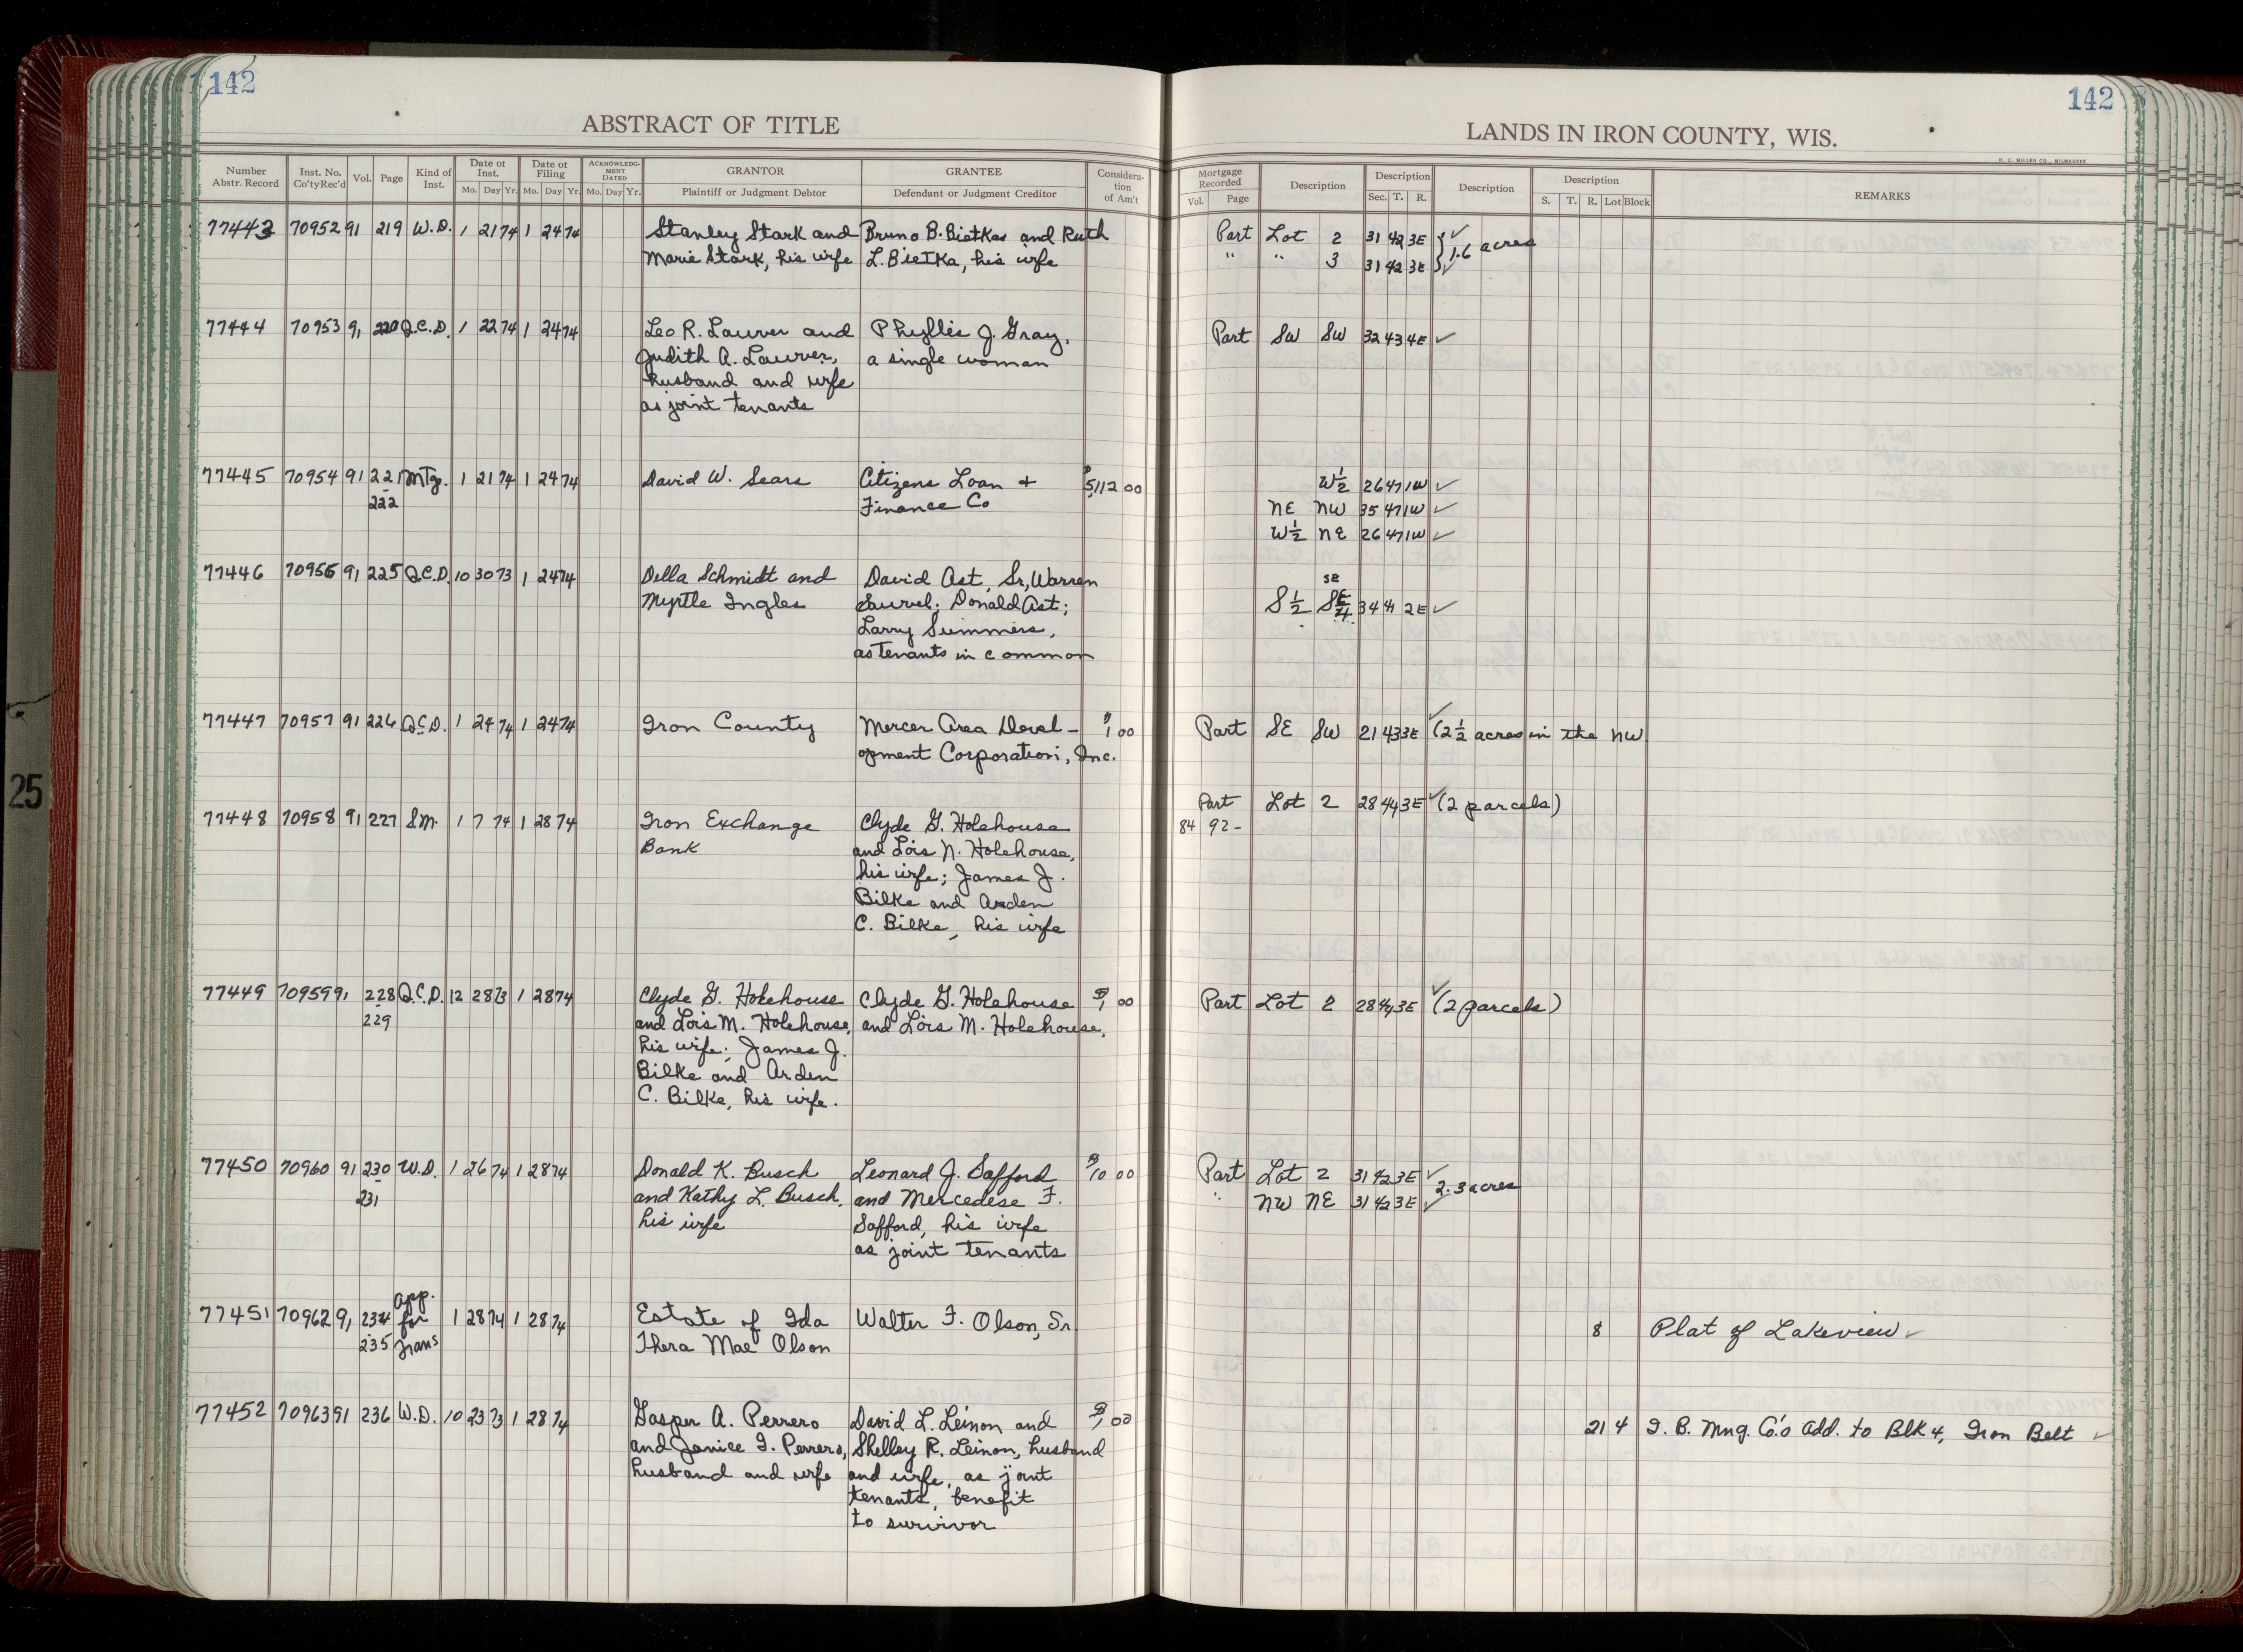 142
ABSTRACT OF TITLE
Number Abstr. Record Inst. No. Co'ty Rec'd Vol. Page Kind of Inst. Date of Inst. Mo. Day Yr. Date of Filing Mo. Day Yr. ACKNOWLEDGMENT DATED Mo. Day Yr. GRANTOR Plaintiff or Judgment Debtor GRANTEE Defendant or Judgment Creditor Consideration of Am't
77443 70952 91 219 W.D. 1 21 74 1 24 74 Stanley Stark and Bruno B. Bietkas and Ruth
Marie Stark, his wife L. Bietka, his wife
77444 70953 91 220 Q.C.D. 1 22 74 1 24 74 Leo R. Laurer and Phyllis J. Gray,
Judith A. Laurer, a single woman
husband and wife
as joint tenants
77445 70954 91 221 Mtg. 1 21 74 1 24 74 David W. Sears Citizens Loan + $5,112 00
222 Finance Co
77446 70956 91 225 Q.C.D. 10 30 73 1 24 74 Della Schmidt and David Ast, Sr, Warren
Myrtle Ingles Donald Ast;
Larry Summers,
as tenants in common
77447 70957 91 226 Q.C.D. 1 24 74 1 24 74 Iron County Mercer Area Devel- $1 00
opment Corporation, Inc.
77448 70958 91 227 S.M. 1 7 74 1 28 74 Iron Exchange Clyde G. Holehouse
Bank and Lois N. Holehouse,
his wife; James J.
Bilke and Arden
C. Bilke, his wife
77449 70959 91 228 Q.C.D. 12 28 73 1 28 74 Clyde G. Holehouse Clyde G. Holehouse $1 00
229 and Lois M. Holehouse, and Lois M. Holehouse,
his wife; James J.
Bilke and Arden
C. Bilke, his wife.
77450 70960 91 230 W.D. 1 26 74 1 28 74 Donald K. Busch Leonard J. Safford $10 00
231 and Kathy L. Busch, and Mercedese F.
his wife Safford, his wife
as joint tenants
app.
77451 70962 91 234 for 1 28 74 1 28 74 Estate of Ida Walter F. Olson, Sr
235 Trans Thera Mae Olson
77452 70963 91 236 W.D. 10 23 73 1 28 74 Gasper A. Perrero David L. Leinon and $1 00
and Janice I. Perrero, Shelley R. Leinon, husband
husband and wife and wife, as joint
tenants, benefit
to survivor
142
LANDS IN IRON COUNTY, WIS.
H. C. MILLER CO., MILWAUKEE
Mortgage Recorded Vol. Page Description Description Sec. T. R. Description Description S. T. R. Lot Block REMARKS
Part Lot 2 31 42 3E ✓ 1.6 acres
" " 3 31 42 3E ✓
Part SW SW 32 43 4E ✓
W½ 26 47 1W ✓
NE NW 35 47 1W ✓
W½ NE 26 47 1W ✓
SE
S½ SE/4 34 41 2E ✓
Part SE SW 21 43 3E ✓ (2½ acres in the NW
Part Lot 2 28 44 3E ✓ (2 parcels)
84 92-
Part Lot 2 28 44 3E ✓ (2 parcels)
Part Lot 2 31 42 3E ✓ 2.3 acres
" NW NE 31 42 3E ✓
8 Plat of Lakeview ✓
21 4 I. B. Mng. Co's Add. to Blk 4, Iron Belt ✓
25